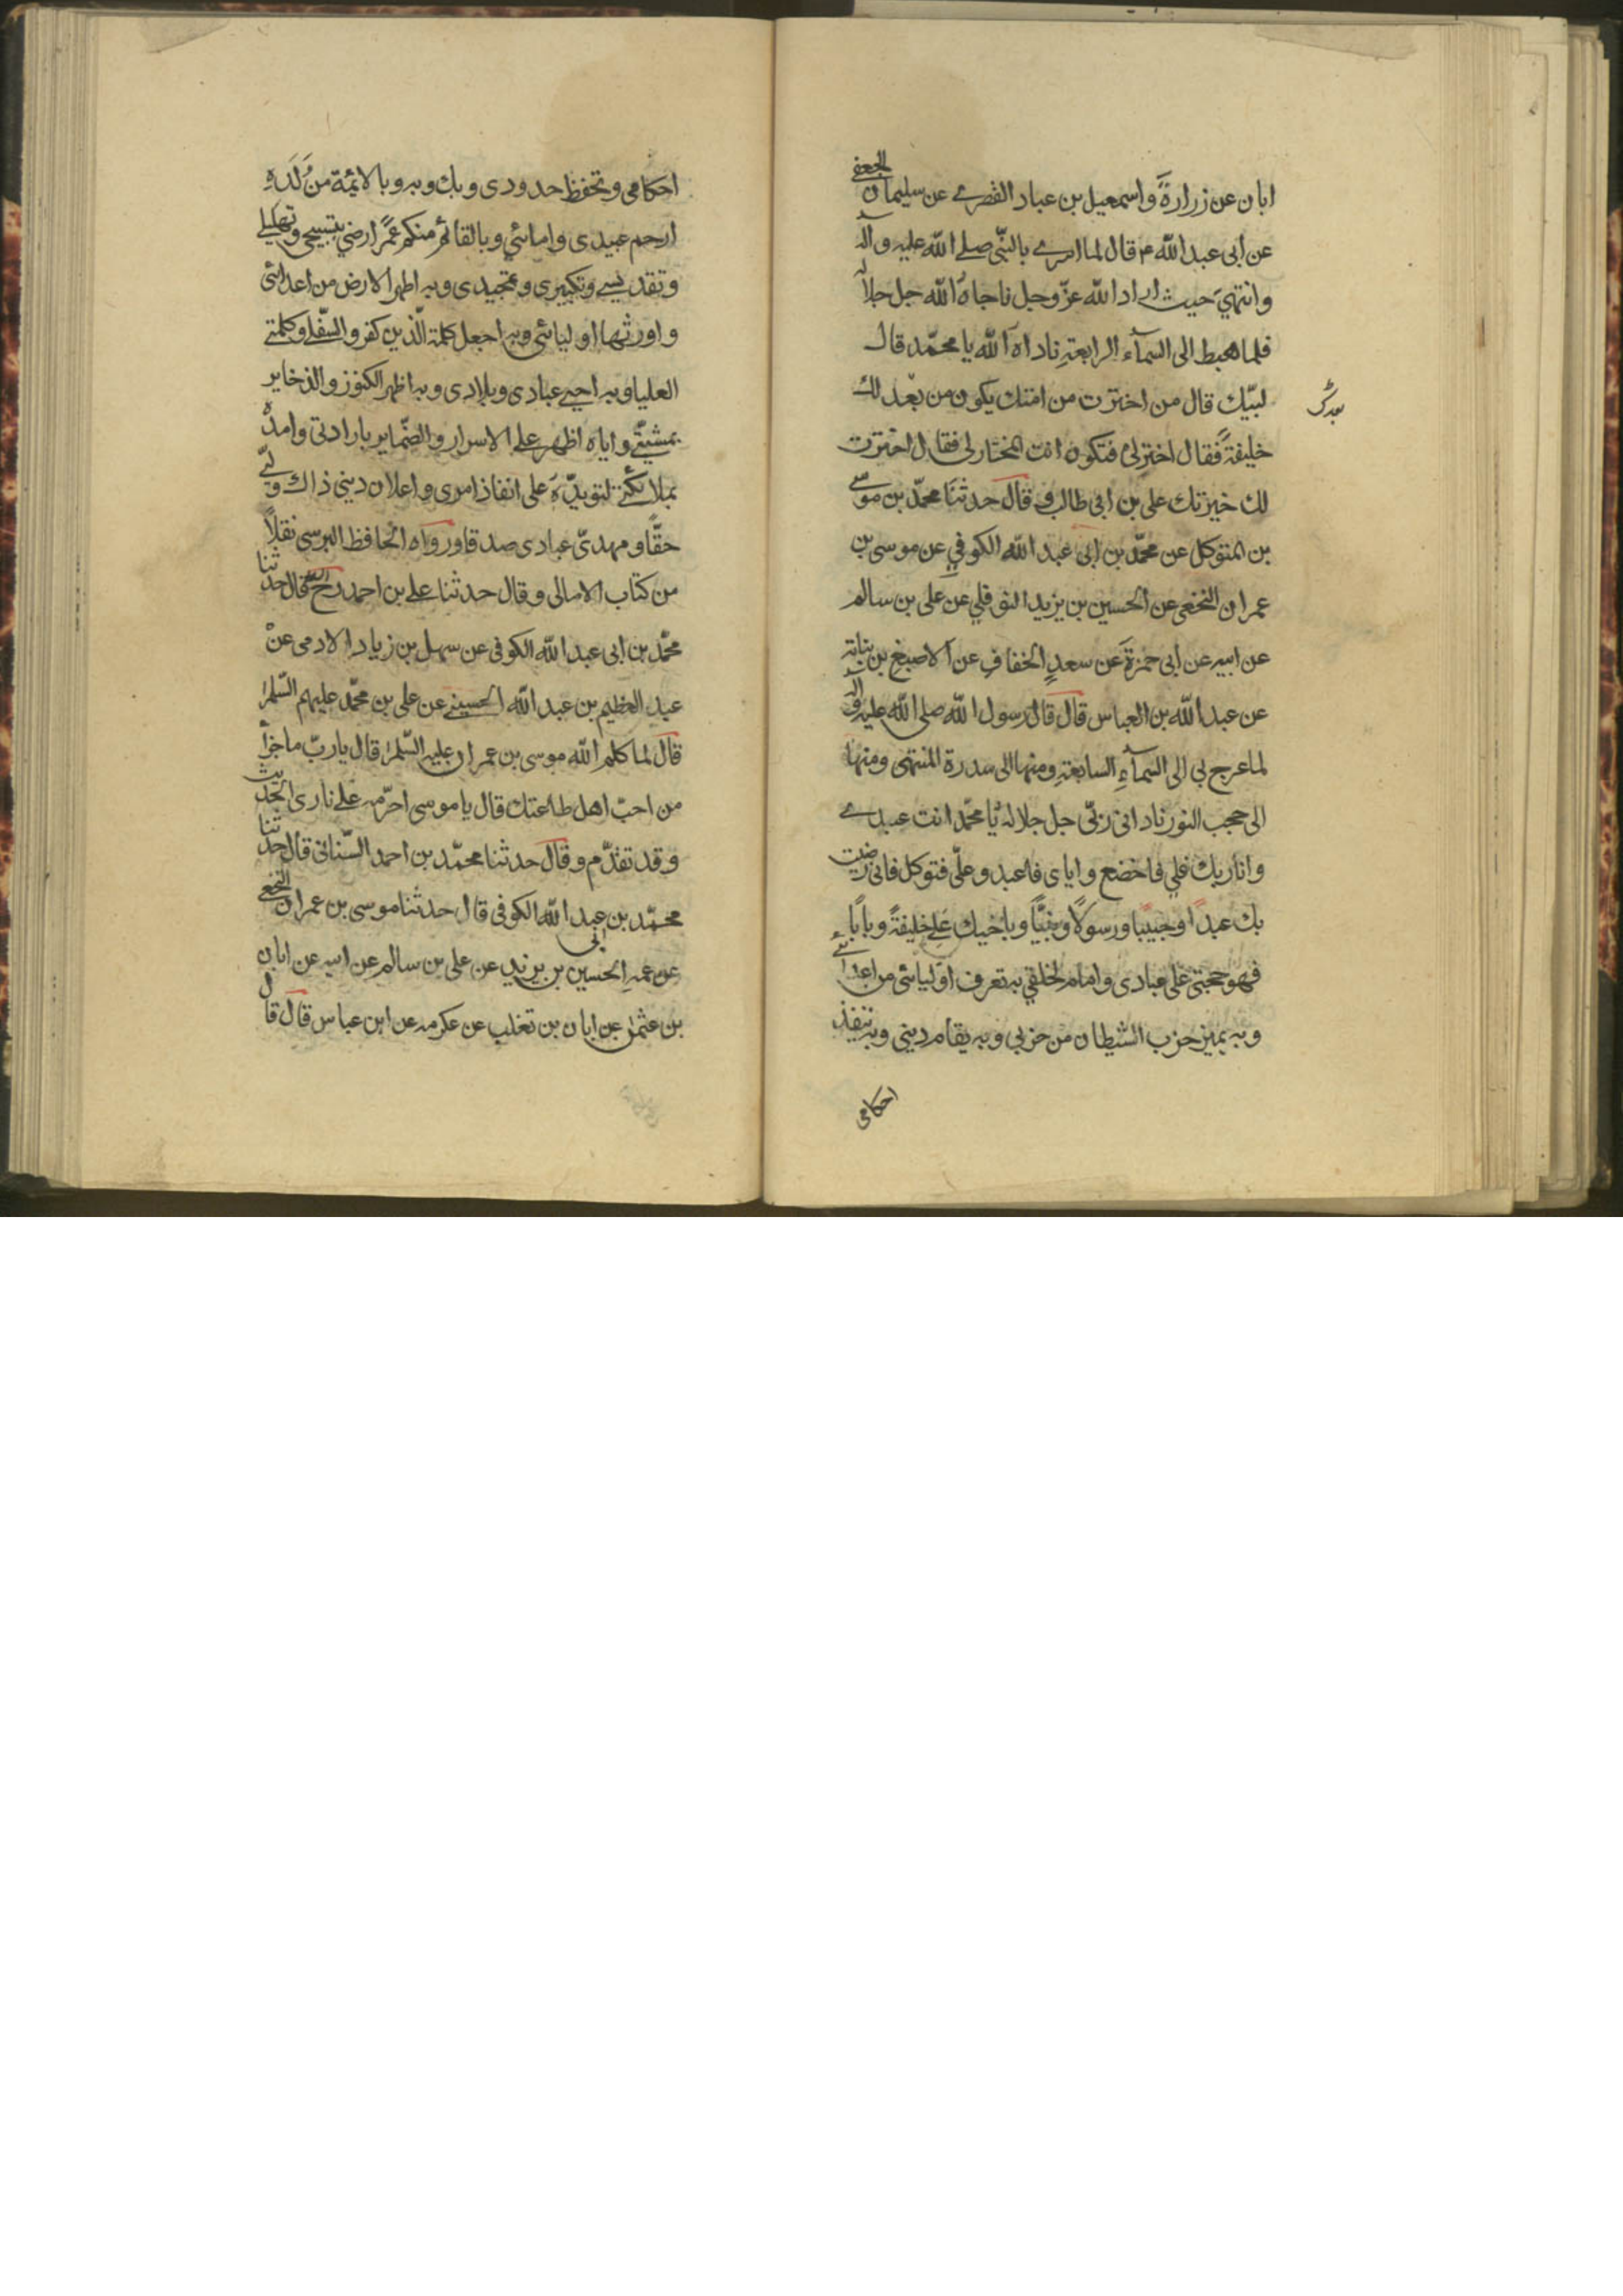 ابان عن زرارة واسمعيل بن عباد القصرے عن سليمان الجعفي
عن ابى عبد الله ع قال لما اسرے بالنبّى صلے الله عليه وآله
وانتهي حيث اراد الله عزّ وجل ناجاه الله جل جلاله
فلما هبط الى السمآء الرابعة ناداه الله يا محمّد قال
لبيّك قال من اخترت من امتك يكون من بعدك لك
خليفة فقال اختر لى فتكون انت المختار لى فقال اخترت
لك خيرتك على بن ابى طالب وقال حدثنا محمّد بن موسى
بن المتوكل عن محمّد بن ابى عبد الله الكوفي عن موسى بن
عمران النخعى عن الحسين بن يزيد النوفلي عن على بن سالم
عن ابيه عن ابى حمزة عن سعد الخفاف عن الاصبغ بن نباتة
عن عبد الله بن العباس قال قال رسول الله صلى الله عليه وآله
لما عرج بي الى السمآء السابعة ومنها الى سدرة المنتهى ومنها
الى حجب النور نادانى ربّى جل جلاله يا محمّد انت عبدے
وانا ربك فلي فاخضع واياى فاعبد وعلّى فتوكل فانى رضيت
بك عبدًا وحبيبا ورسولًا ونبيًّا وباخيك علے خليفة وبابًا
فهو حجتي على عبادى وامام لخلقي به تعرف اوليائى من اعدائے
وبه يميز حزب الشيطان من حزبي وبه يقام ديني وبه تنفيذ
احكامى
احكامى وتحفظ حدودى وبك وبه وبالائمّة من ولده
ارحم عبيدى وامائي وبالقائم منكم عمّر ارضي بتسبيحى وتهليلے
وتقديسے وتكبيرى وتمجيدى وبه اطهر الارض من اعدائى
واورثها اوليائى وبه اجعل كلمة الّذين كفروا السّفلے وكلمتے
العليا وبه احيے عبادى وبلادى وبه اظهر الكنوز والذخاير
بمشيتے واياه اظهر علے الاسرار والضماير بارادتى وامدّه
بملائكتے لتويدّه على انفاذ امرى واعلان ديني ذاك وليّے
حقًّا ومهدىّ عبادى صدقا ورواه الحافظ البرسى نقلًا
من كتاب الامالى وقال حدثنا علے بن احمد قال حدثنا
محمّد بن ابى عبد الله الكوفى عن سهل بن زياد الادمى عن
عبد العظيم بن عبد الله الحسينے عن على بن محمّد عليهم السّلم
قال لما كلم الله موسى بن عمران عليه السّلم قال يا ربّ ما جزآ
من احبّ اهل طاعتك قال يا موسى احرّمه علے نارى الحديث
وقد تقدّم وقال حدثنا محمّد بن احمد السّنانى قال حدثنا
محمّد بن ابى عبد الله الكوفى قال حدثنا موسى بن عمران النخعى
عن عمه الحسين بن يزيد عن على بن سالم عن ابيه عن ابان
بن عثمن عن ابان بن تغلب عن عكرمه عن ابن عباس قال قال